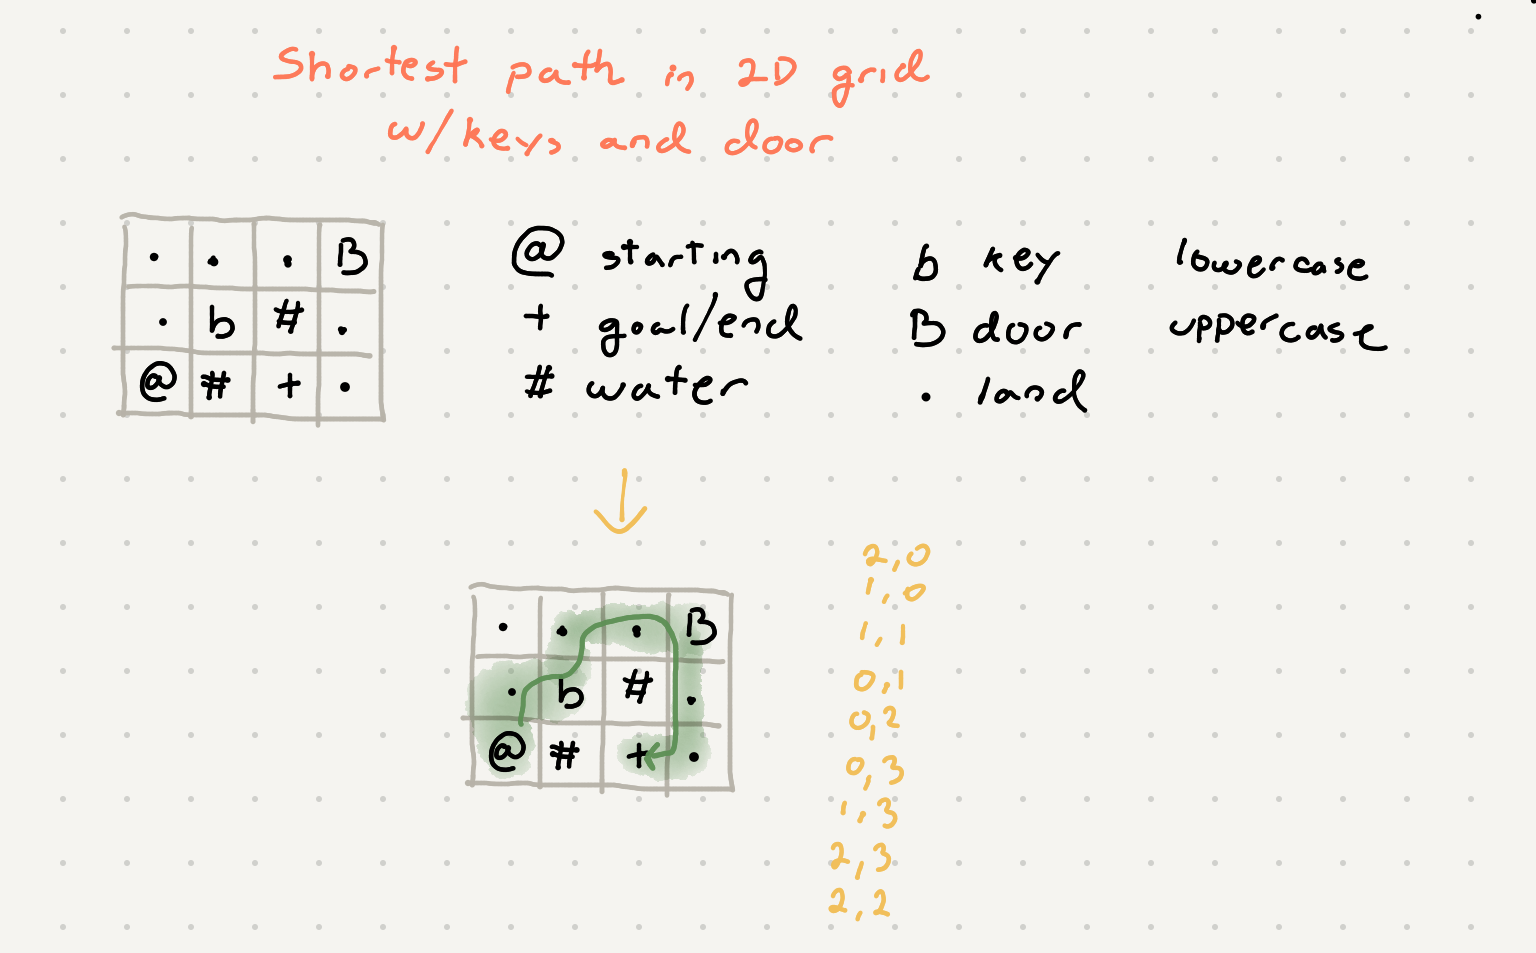 Shortest path in 2D grid
w/keys and door
. . . B
. b # .
@ # + .
@ starting b key lowercase
+ goal/end B door uppercase
# water . land
. . . B
. b # .
@ # + .
2,0
1,0
1,1
0,1
0,2
0,3
1,3
2,3
2,2